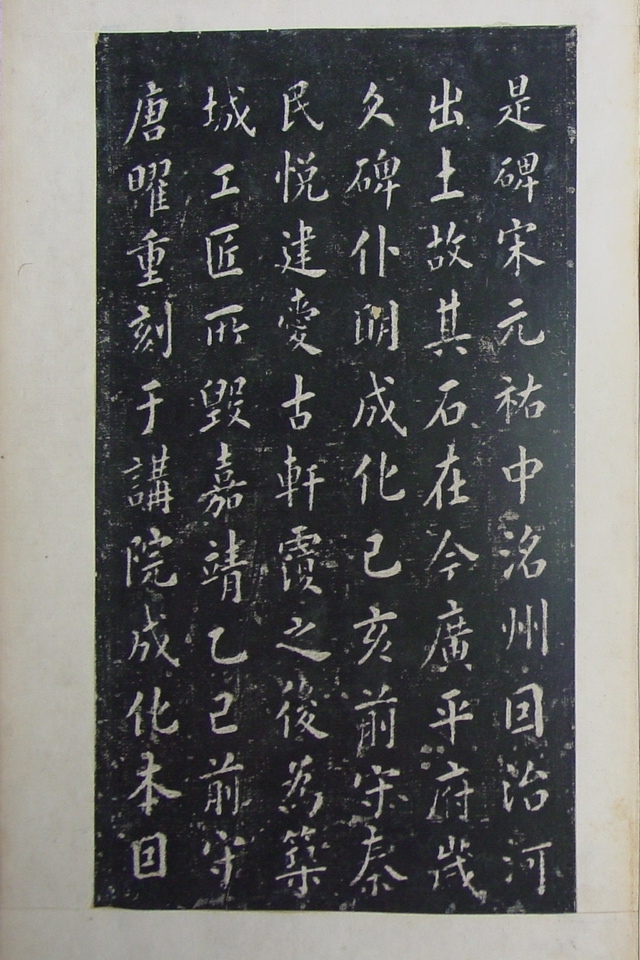 是碑宋元祐中洺州回治河
出土故其石在今廣平府歲
久碑仆明成化己亥前守秦
民悅建愛古軒覆之後為築
城工匠所毀嘉靖乙巳前守
唐曜重刻于講院成化本回